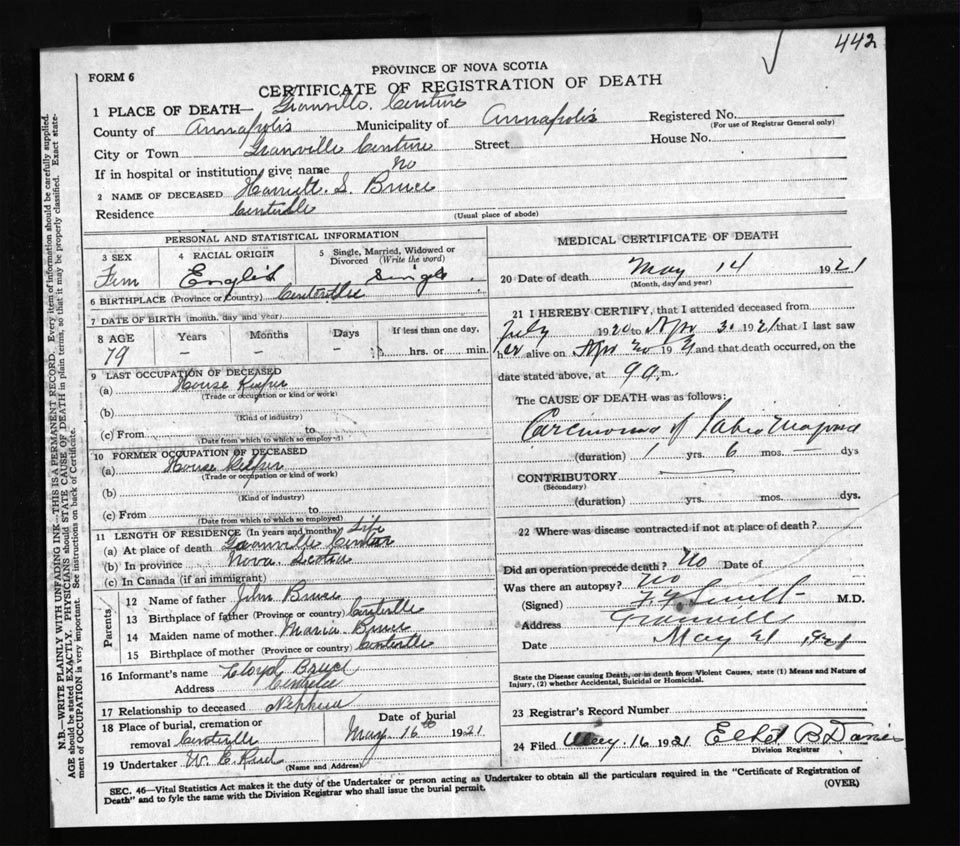 442
PROVINCE OF NOVA SCOTIA
FORM 6
CERTIFICATE OF REGISTRATION OF DEATH
1 PLACE OF DEATH— Granville Centre
County of Annapolis Municipality of Annapolis Registered No.
(For use of Registrar General only)
City or Town Granville Centre Street House No.
If in hospital or institution, give name No
2 NAME OF DECEASED Harriett S. Bruce
Residence Centerville
(Usual place of abode)
PERSONAL AND STATISTICAL INFORMATION
3 SEX 4 RACIAL ORIGIN 5 Single, Married, Widowed or Divorced (Write the word)
Fem English Single
6 BIRTHPLACE (Province or Country) Centerville
7 DATE OF BIRTH (month, day and year)
8 AGE Years Months Days If less than one day,
79 — — hrs. or min.
9 LAST OCCUPATION OF DECEASED
(a) House Keeper
(Trade or occupation or kind of work)
(b)
(Kind of industry)
(c) From to
(Date from which to which so employed)
10 FORMER OCCUPATION OF DECEASED
(a) House Keeper
(Trade or occupation or kind of work)
(b)
(Kind of industry)
(c) From to
(Date from which to which so employed)
11 LENGTH OF RESIDENCE (In years and months) Life
(a) At place of death Granville Center
(b) In province Nova Scotia
(c) In Canada (if an immigrant)
Parents
12 Name of father John Bruce
13 Birthplace of father (Province or country) Centerville
14 Maiden name of mother Maria Bruce
15 Birthplace of mother (Province or country) Centerville
16 Informant's name Lloyd Bruce
Address
17 Relationship to deceased Nephew
18 Place of burial, cremation or Date of burial
removal Centerville May 16th 1921
19 Undertaker W. C.
(Name and Address)
MEDICAL CERTIFICATE OF DEATH
20 Date of death May 14 1921
(Month, day and year)
21 I HEREBY CERTIFY, that I attended deceased from
July 1920 to Apr 30 1921 that I last saw
her alive on Apr 192 and that death occurred, on the
date stated above, at 9 a.m.
The CAUSE OF DEATH was as follows:
Carcinoma of Labia
(duration) 1 yrs. 6 mos. — dys
CONTRIBUTORY
(Secondary)
(duration) yrs. mos. dys.
22 Where was disease contracted if not at place of death?
Did an operation precede death? No Date of
Was there an autopsy? No
(Signed) M.D.
Address Granville
Date May 21 1921
State the Disease causing Death, or in death from Violent Causes, state (1) Means and Nature of
Injury, (2) whether Accidental, Suicidal or Homicidal.
23 Registrar's Record Number
24 Filed May 16 1921 B. Davies
Division Registrar
SEC. 46—Vital Statistics Act makes it the duty of the Undertaker or person acting as Undertaker to obtain all the particulars required in the "Certificate of Registration of
Death" and to fyle the same with the Division Registrar who shall issue the burial permit.
(OVER)
N.B.—WRITE PLAINLY WITH UNFADING INK—THIS IS A PERMANENT RECORD. Every item of information should be carefully supplied.
AGE should be stated EXACTLY. PHYSICIANS should STATE CAUSE OF DEATH in plain terms, so that it may be properly classified. Exact state-
ment of OCCUPATION is very important. See instructions on back of Certificate.